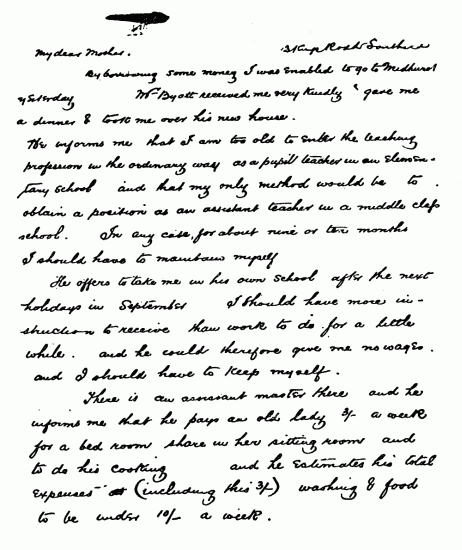 My dear Mother. Kings Road Southsea
By borrowing some money I was enabled to go to Midhurst
yesterday Mr Byatt received me very kindly & gave me
a dinner & took me over his new house.
He informs me that I am too old to enter the teaching
profession in the ordinary way as a pupil teacher in an Elemen-
tary School and that my only method would be to
obtain a position as an assistant teacher in a middle class
school. In any case, for about nine or ten months
I should have to maintain myself
He offers to take me in his own School after the next
holidays in September I should have more in-
struction to receive than work to do for a little
while. and he could therefore give me no wages.
and I should have to keep myself.
There is an assistant master there and he
informs me that he pays an old lady 3/- a week
for a bed room share in her sitting room and
to do his cooking and he estimates his total
expenses (including this 3/-) washing & food
to be under 10/- a week.